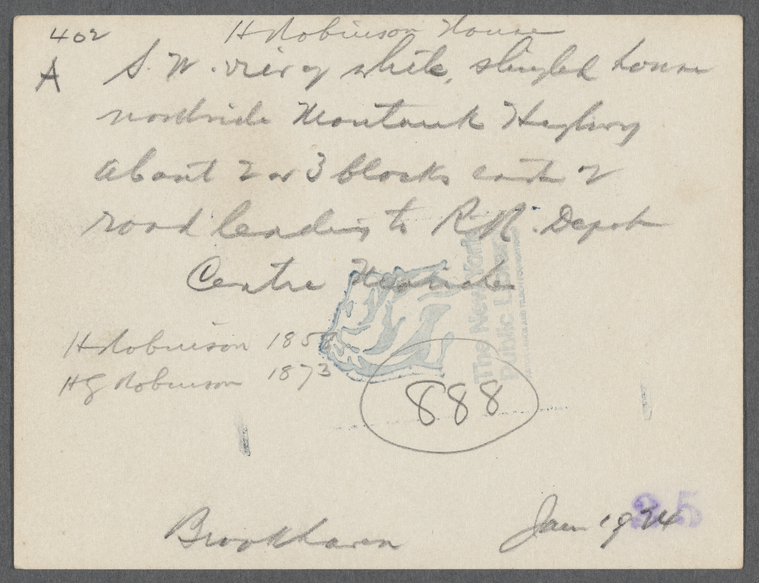 402 H Robinson House
A S. W. view of white, shingled house
northside Montauk Highway
about 2 or 3 blocks east of
road leading to R.R. Depot
Centre Moriches
H Robinson 1858
HG Robinson 1873
The New York
Public Library
888
Brookhaven Jan 1924
35